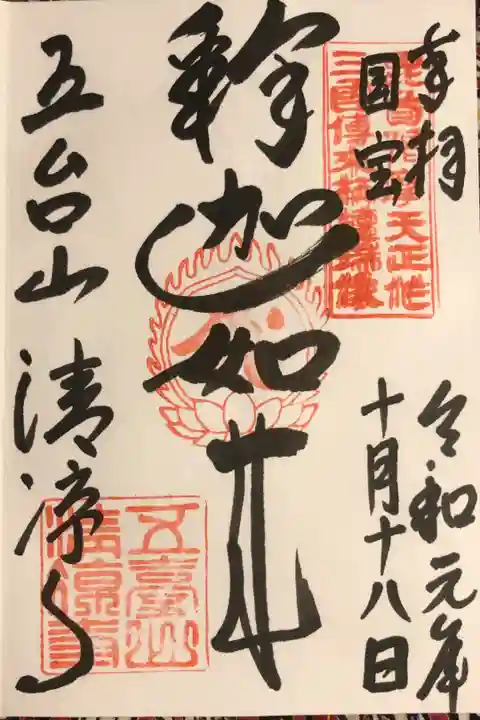 奉拝
国宝
毘首羯磨天正作
三國傳来栴檀瑞像
令和元年
十月十八日
釋迦如来
五台山 清凉寺
五臺山
清凉寺